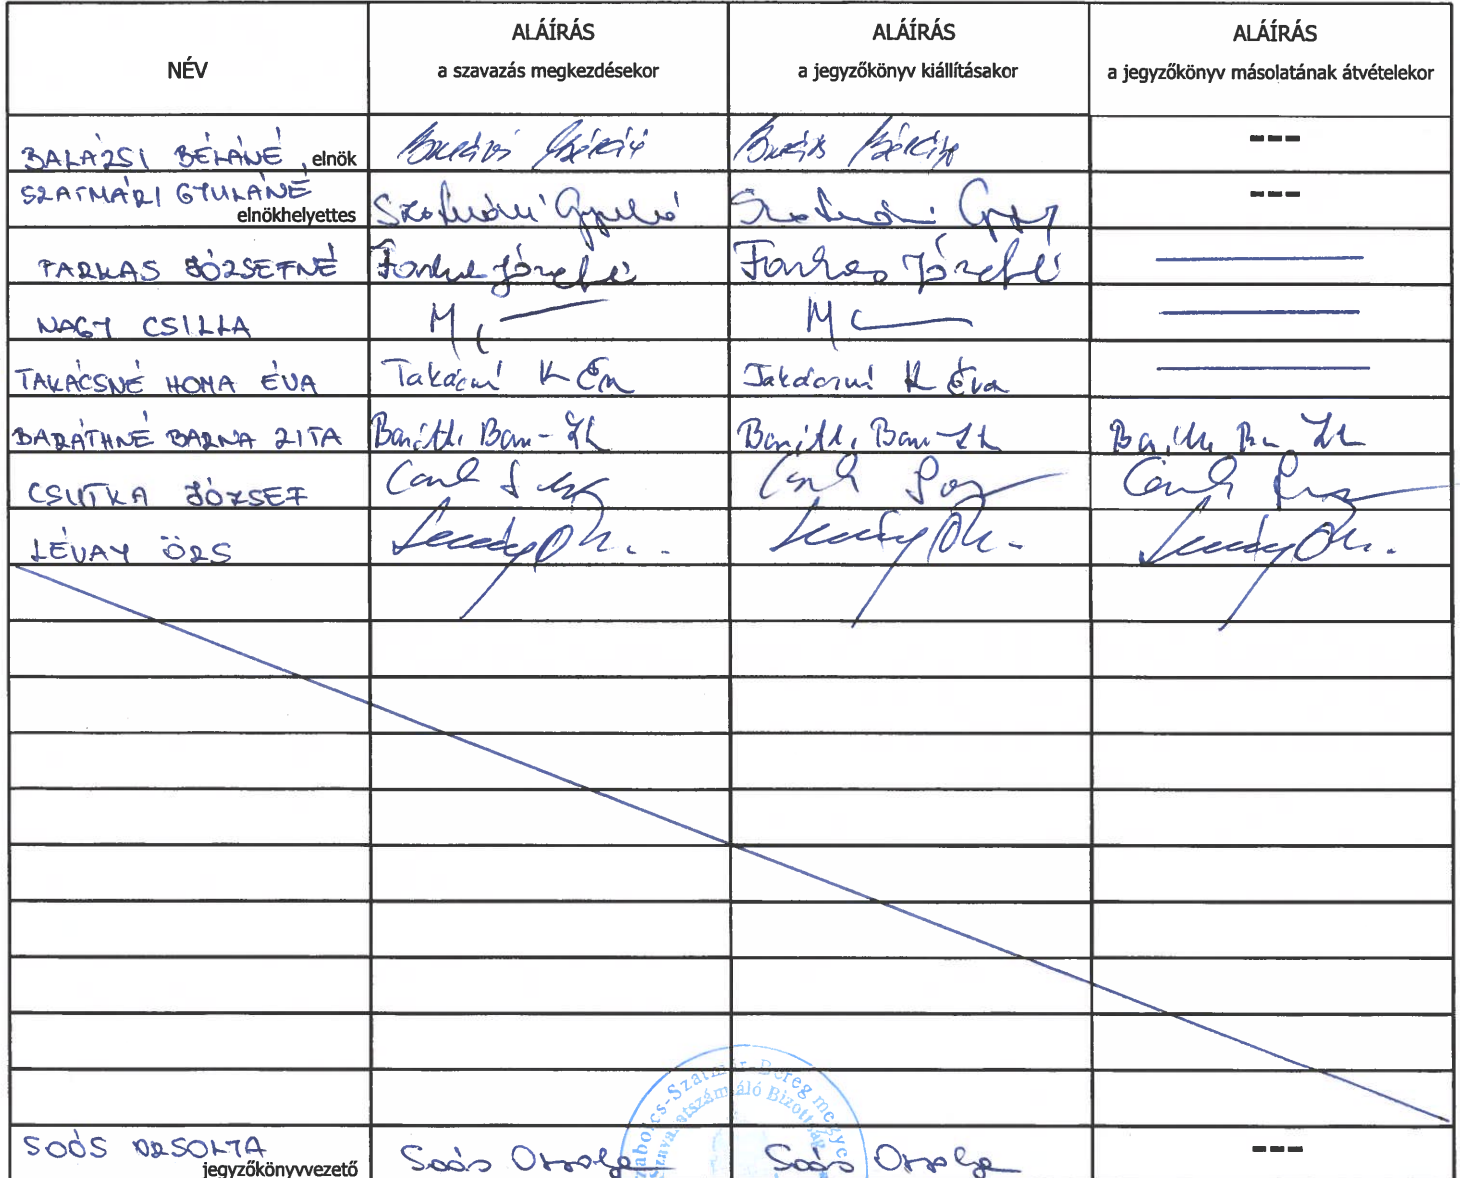 NÉV
ALÁÍRÁS
a szavazás megkezdésekor
ALÁÍRÁS
a jegyzőkönyv kiállításakor
ALÁÍRÁS
a jegyzőkönyv másolatának átvételekor
BALÁZSI BÉLÁNÉ, elnök
---
SZATMÁRI GYULÁNÉ
elnökhelyettes
Szatmári Gyuláné
Szatmári
---
FARKAS JÓZSEFNÉ
Farkas Józsefné
Farkas Józsefné
NAGY CSILLA
TAKÁCSNÉ HOMA ÉVA
Takácsné H Éva
Takácsné H Éva
BARÁTHNÉ BARNA ZITA
CSUTKA JÓZSEF
LÉVAY ÖRS
SOÓS ORSOLYA
jegyzőkönyvvezető
Soós Orsolya
Soós Orsolya
---
Szabolcs-Szatmár-Bereg megye
Szavazatszámláló Bizottság